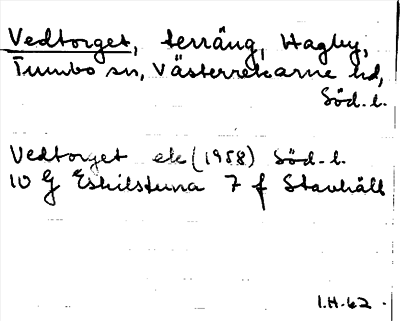 Vedtorget, terräng, Hagby,
Tumbo sn, Västerrekarne hd,
Söd. l.
Vedtorget ek (1958) Söd. l.
10 G Eskilstuna 7 f Stavhäll
I.H-62